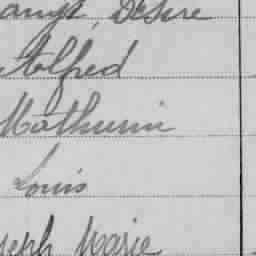 Désiré
Alfred
Mathurin
Louis
Joseph Marie